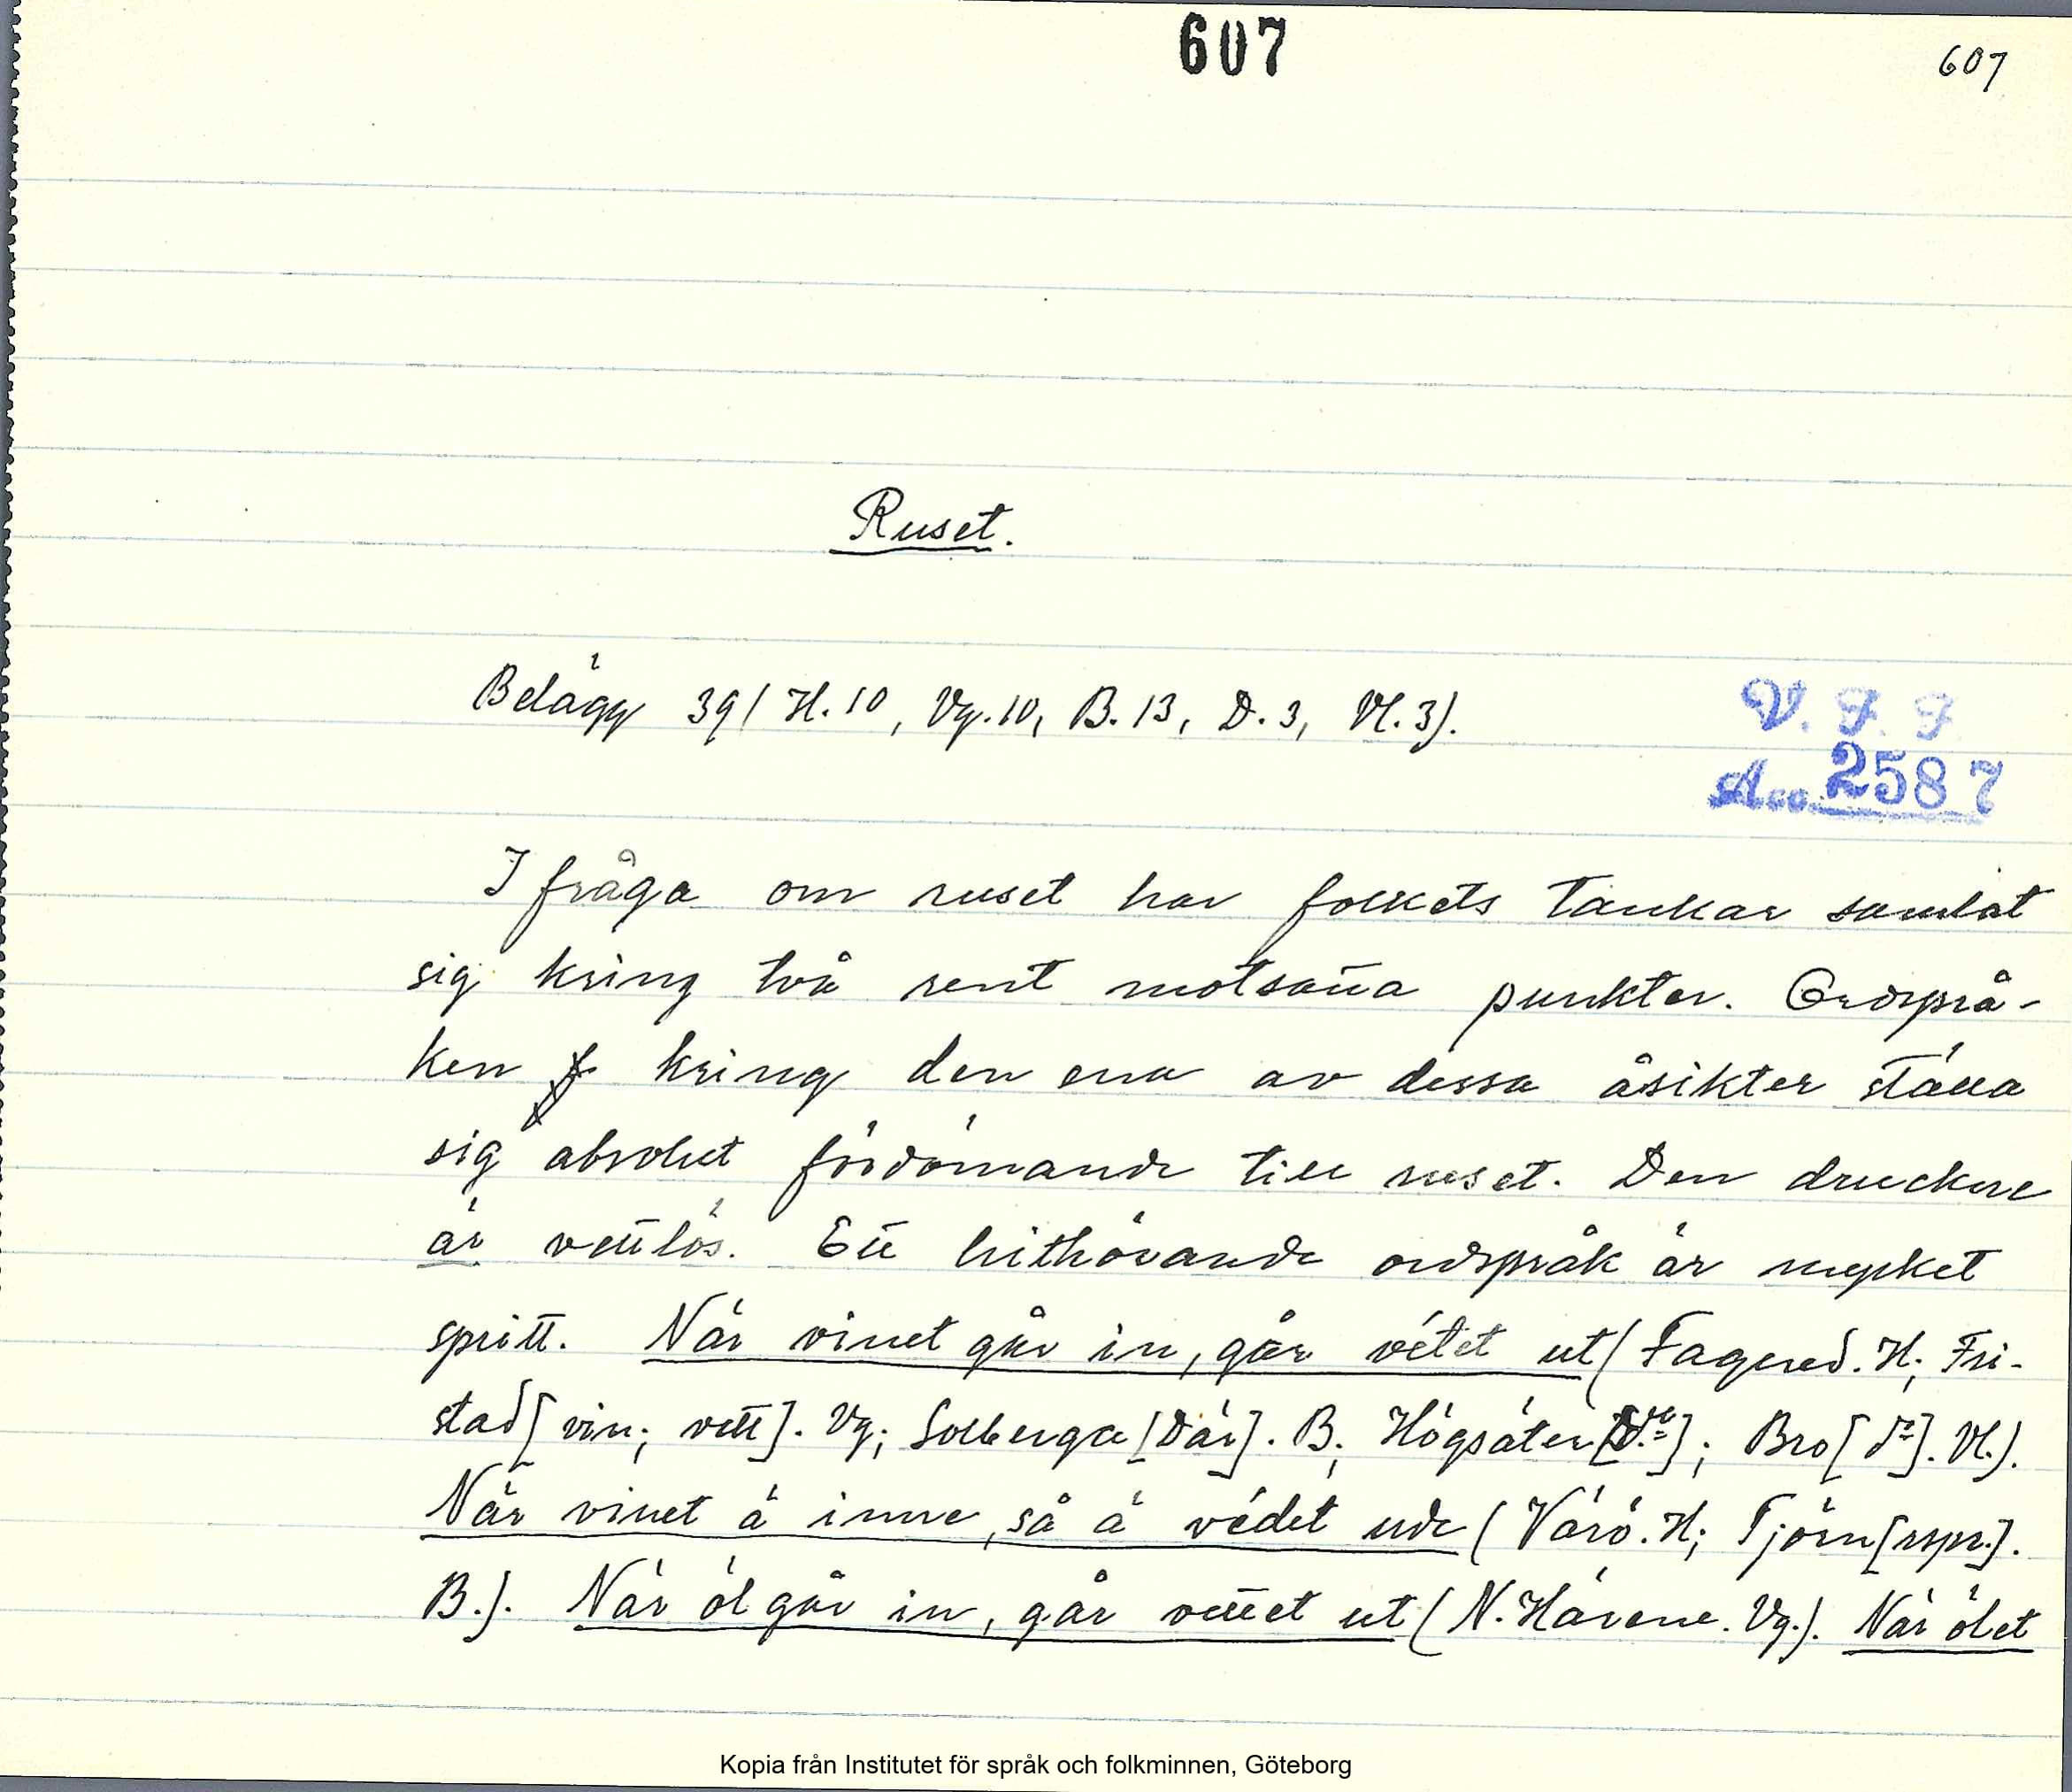 607
607
Ruset.
Belägg 39 (H. 10, Vg. 10, B. 13, D. 3, Vl. 3).
V. F. F.
Acc. 2587
I fråga om ruset har folkets tankar samlat
sig kring två rent motsatta punkter. Ordsprå-
ken kring den ena av dessa åsikter ställa
sig absolut fördömande till ruset. Den druckne
är vettlös. Ett hithörande ordspråk är mycket
spritt. När vinet går in, går vétet ut (Fagered. H; Fri-
stad [vin; vett]. Vg; Solberga [Där]. B; Högsäter [d:o]; Bro [d:o]. Vl.).
När vinet ä inne, så ä védet ude (Värö. H; Tjörn [rspr.].
B.). När öl går in, går vettet ut (N. Härene. Vg.). När ölet
Kopia från Institutet för språk och folkminnen, Göteborg